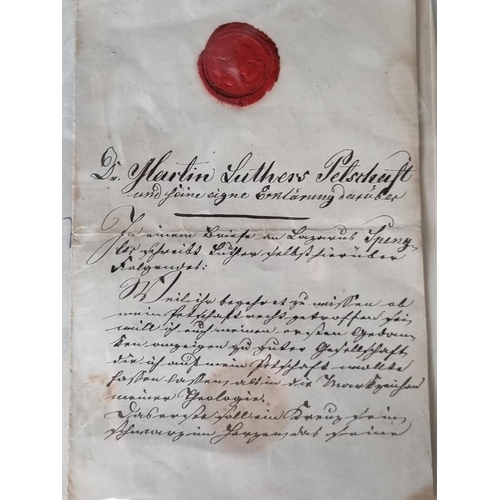 Dr. Martin Luthers Petschaft
und seine eigne Erklärung darüber
In einem Briefe an Lazarus Speng-
ler schreibt Luther selbst hierüber
Folgendes:
Weil ihr begehret zu wissen ob
mein Petschaft recht getroffen sei,
will ich euch meinen ersten Gedan-
ken anzeigen zu guter Gesellschaft,
die ich auf mein Petschaft wollte
fassen lassen, als in die Markzeichen
meiner Theologie.
Das erste soll ein Kreuz sein,
schwarz im Herzen, das seine